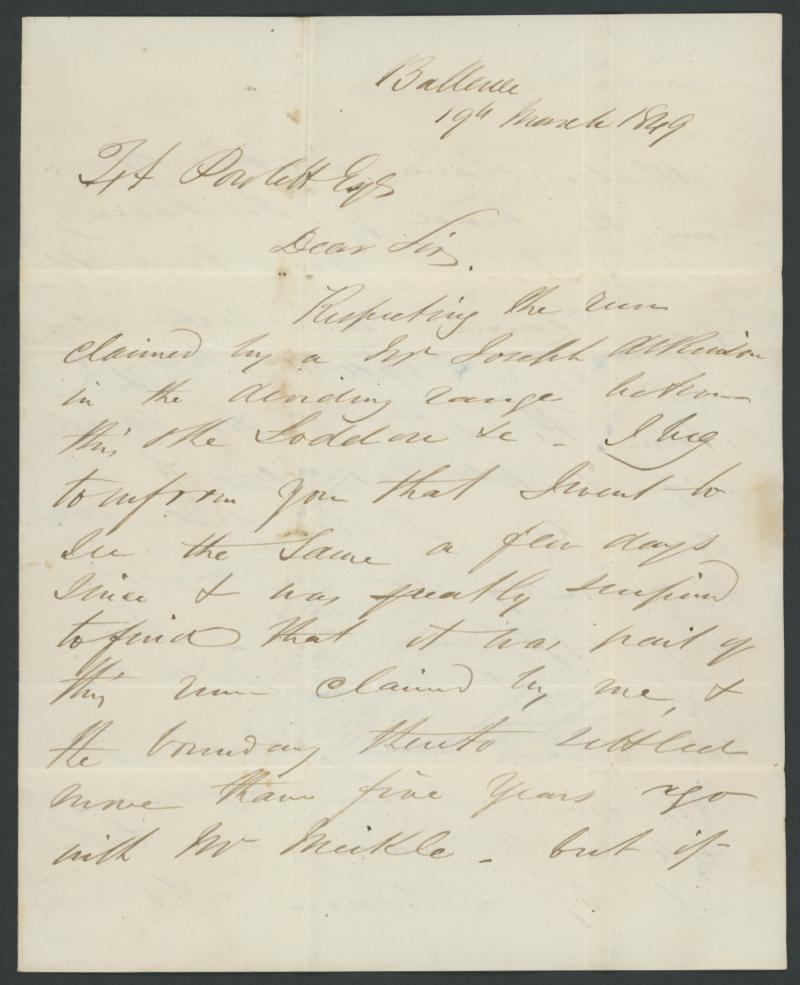 Ballerue
19th March 1849
Powlett Esqr
Dear Sir,
Respecting the run
claimed by a Mr Joseph Atkinson
in the dividing range between
this & the Loddon &c - I beg
to inform you that I went to
see the same a few days
since & was greatly surprised
to find that it was part of
this run claimed by me, &
the boundary thereto settled
more than five years ago
with Mr Meikle - but if